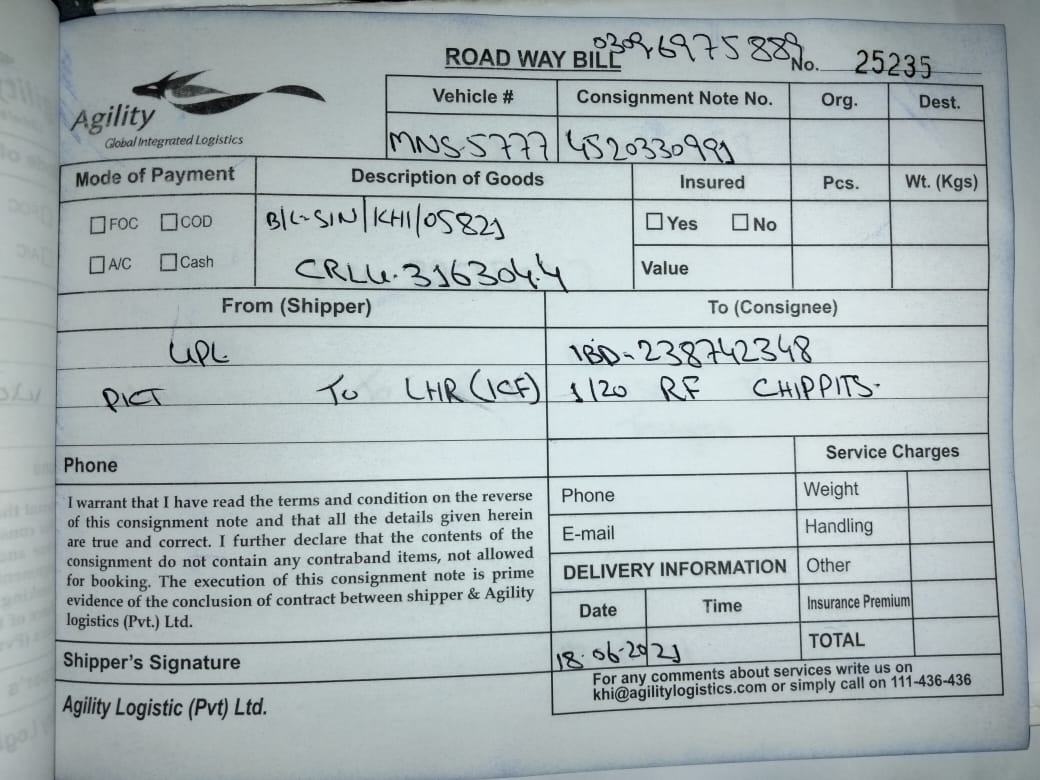 ROAD WAY BILL
03096975889
No. 25235
Agility
Global Integrated Logistics
Vehicle # Consignment Note No. Org. Dest.
MNS-5777 4520330991
Mode of Payment Description of Goods Insured Pcs. Wt. (Kgs)
FOC COD B/L-SIN/KHI/05821 Yes No
A/C Cash CRLU.316304.4 Value
From (Shipper) To (Consignee)
UPL IBD-238742348
PICT To LHR (ICF) 1/20 RF CHIPPITS.
Phone Service Charges
I warrant that I have read the terms and condition on the reverse
of this consignment note and that all the details given herein
are true and correct. I further declare that the contents of the
consignment do not contain any contraband items, not allowed
for booking. The execution of this consignment note is prime
evidence of the conclusion of contract between shipper & Agility
logistics (Pvt.) Ltd.
Phone Weight
E-mail Handling
DELIVERY INFORMATION Other
Date Time Insurance Premium
18-06-2021 TOTAL
Shipper's Signature
For any comments about services write us on
khi@agilitylogistics.com or simply call on 111-436-436
Agility Logistic (Pvt) Ltd.